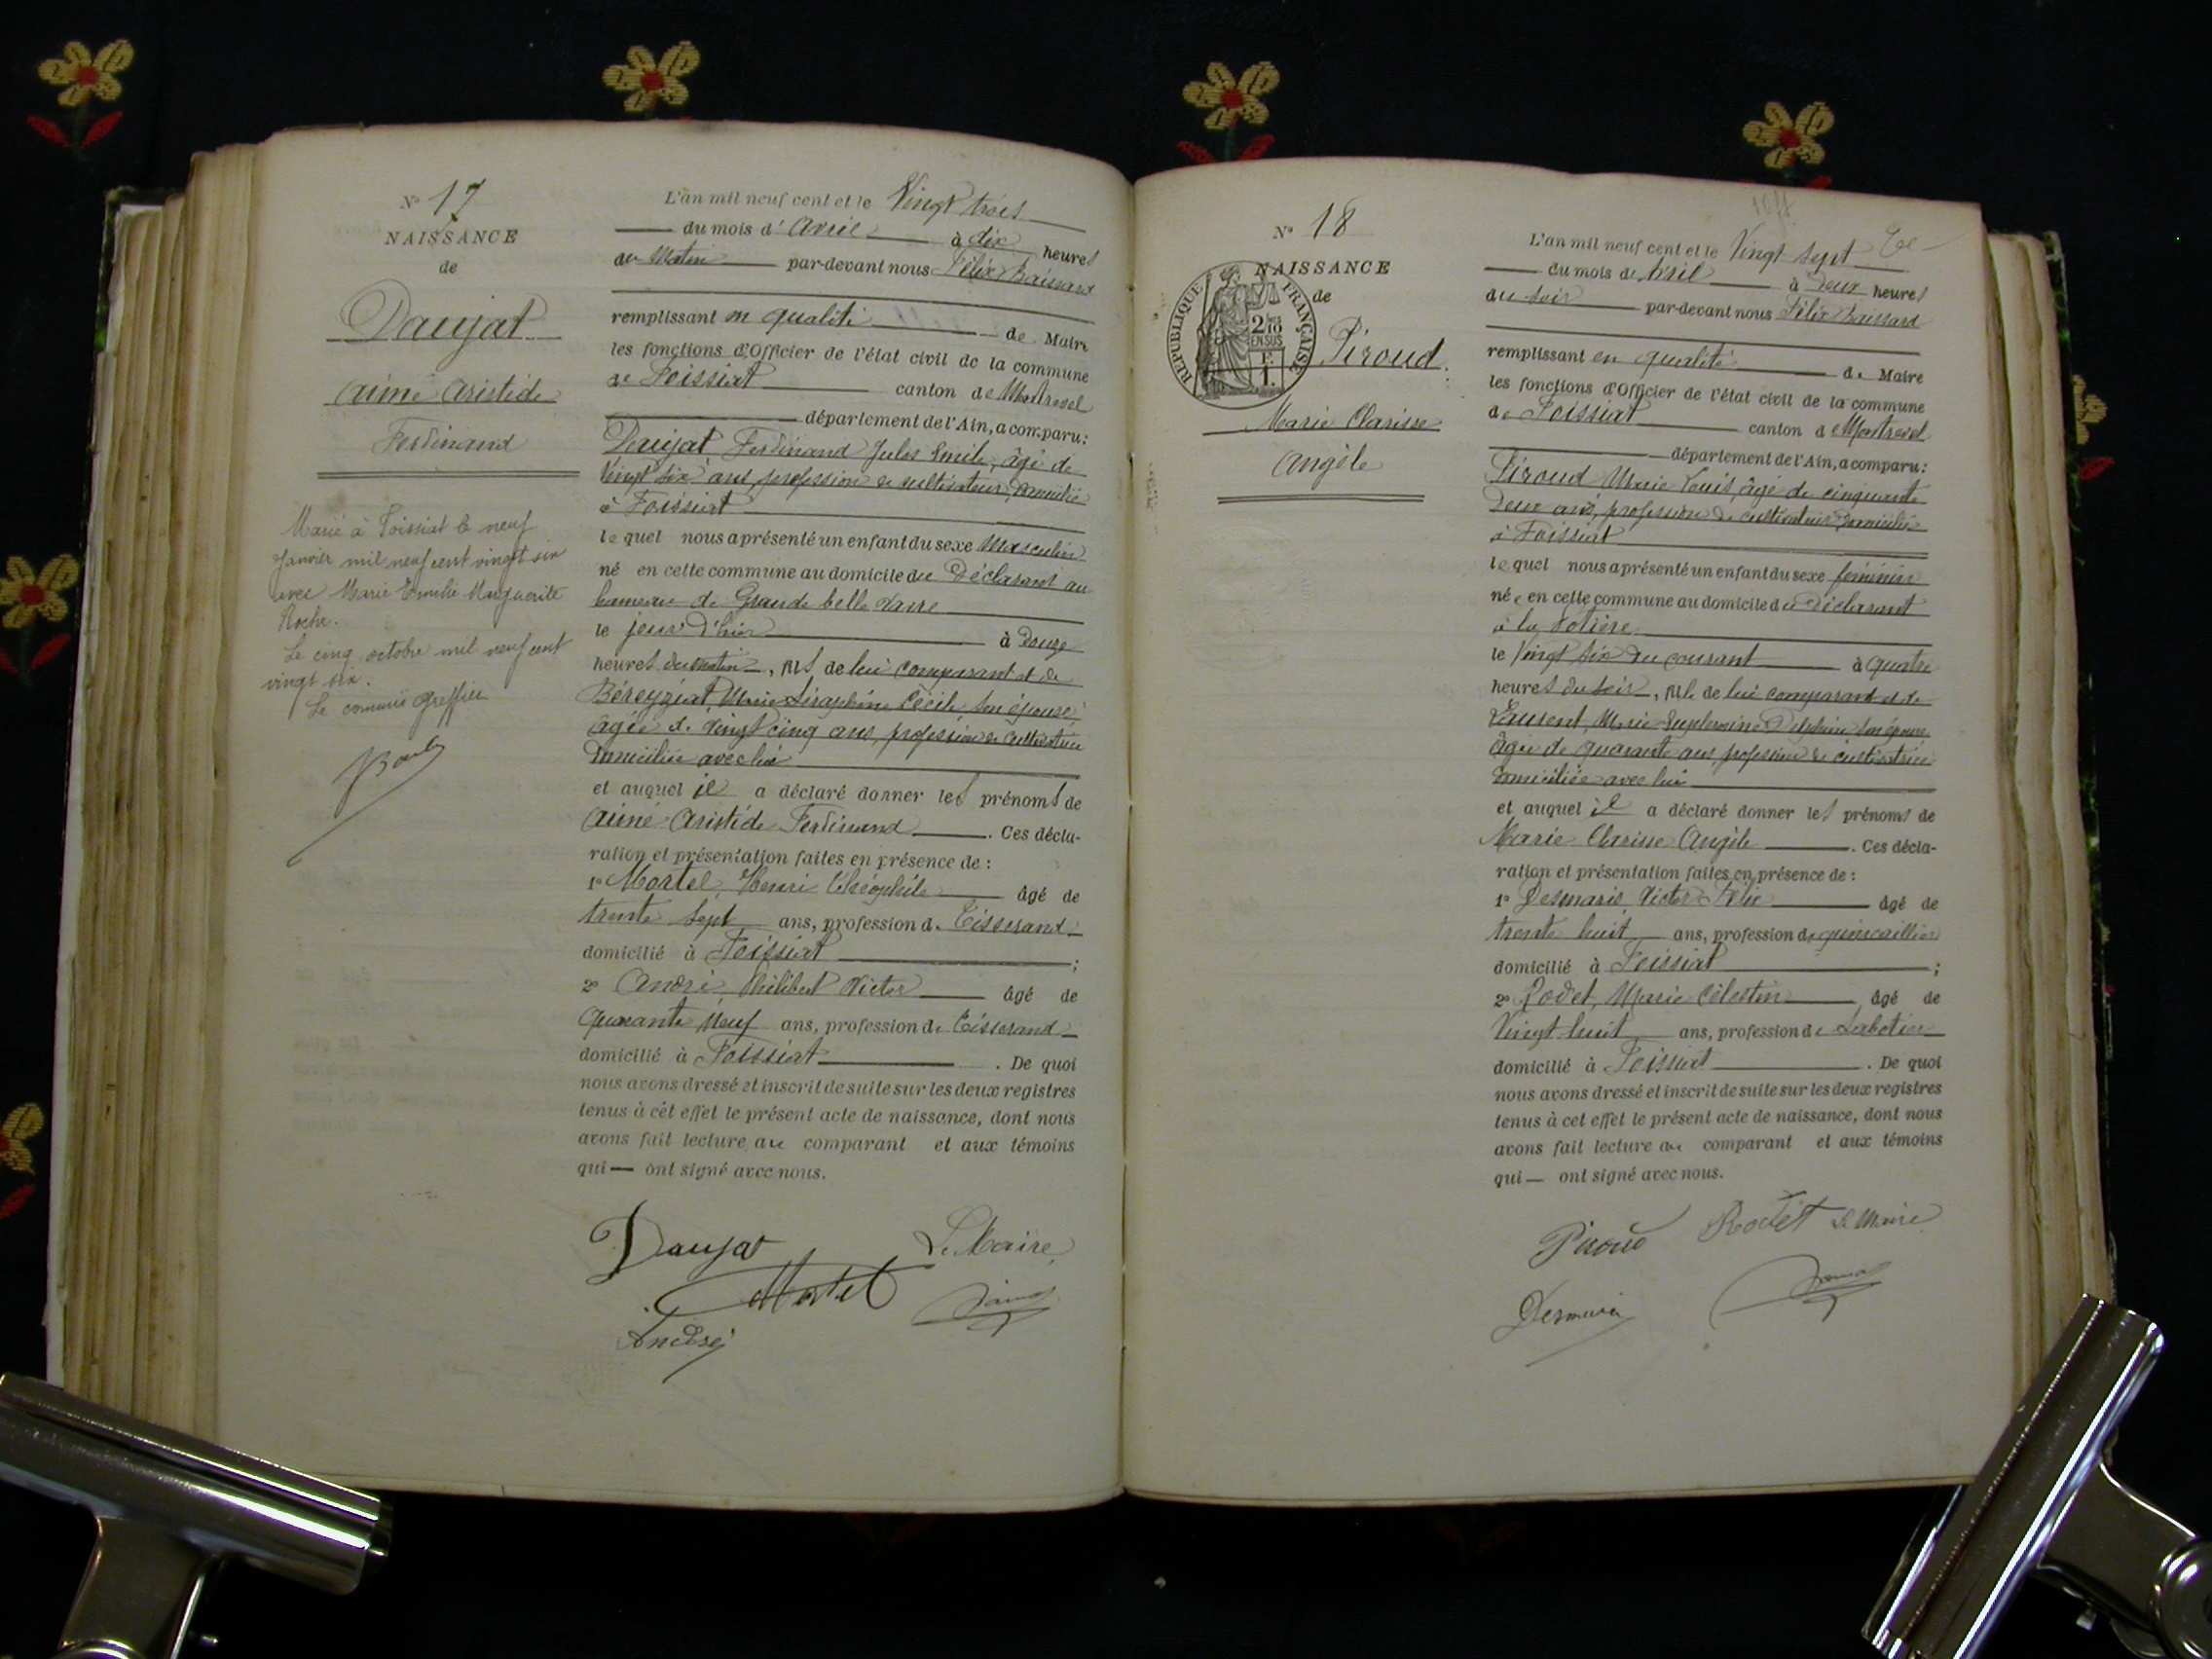 N° 17
NAISSANCE
de
Daujat
Aimé Aristide
Ferdinand
Marié à Foissiat le neuf
Janvier mil neuf cent vingt six
avec Marie Emilie Marguerite
Roche.
Le cinq octobre mil neuf cent
vingt six.
Le commis Greffier
L'an mil neuf cent et le Vingt trois
du mois d'Avril à dix heures
du Matin par-devant nous Félix
remplissant en qualité de Maire
les fonctions d'Officier de l'état civil de la commune
de Foissiat canton de Montrevel
département de l'Ain, a comparu:
Daujat Ferdinand Jules Emile, âgé de
Vingt six ans, profession de cultivateur, domicilié
à Foissiat
le quel nous a présenté un enfant du sexe Masculin
né en cette commune au domicile du Déclarant au
hameau de Grande belle
le jour d'hier à Douze
heures du matin, fils de lui comparant et de
Béreyziat, Marie Séraphine Cécile son épouse,
âgée de vingt cinq ans, profession de cultivatrice
domiciliée avec lui
et auquel il a déclaré donner les prénoms de
Aimé Aristide Ferdinand. Ces décla-
ration et présentation faites en présence de :
1° Mortel, Henri Théophile âgé de
trente sept ans, profession de Tisserand
domicilié à Foissiat ;
2° André, Philibert Victor âgé de
quarante neuf ans, profession de Tisserand
domicilié à Foissiat. De quoi
nous avons dressé et inscrit de suite sur les deux registres
tenus à cet effet le présent acte de naissance, dont nous
avons fait lecture au comparant et aux témoins
qui — ont signé avec nous.
Daujat Le Maire,
Mortel
André
N° 18
NAISSANCE
de
RÉPUBLIQUE FRANÇAISE
2/10
EN SUS
Piroud
Marie Clarisse
Angèle
L'an mil neuf cent et le Vingt sept
du mois de Avril à Deux heures
du soir par-devant nous Félix
remplissant en qualité de Maire
les fonctions d'Officier de l'état civil de la commune
de Foissiat canton de Montrevel
département de l'Ain, a comparu:
Piroud Marie Louis, âgé de cinquante
Deux ans, profession de cultivateur, domicilié
à Foissiat
le quel nous a présenté un enfant du sexe féminin
née en cette commune au domicile du Déclarant
à la
le Vingt six du courant à quatre
heures du soir, fille de lui comparant et de
Marie Delphine son épouse
âgée de quarante ans, profession de cultivatrice
domiciliée avec lui
et auquel il a déclaré donner les prénoms de
Marie Clarisse Angèle. Ces décla-
ration et présentation faites en présence de :
1° Desmaris, Victor Félix âgé de
trente huit ans, profession de quincaillier
domicilié à Foissiat ;
2° Rodet, Marie Célestin âgé de
Vingt huit ans, profession de Sabotier
domicilié à Foissiat. De quoi
nous avons dressé et inscrit de suite sur les deux registres
tenus à cet effet le présent acte de naissance, dont nous
avons fait lecture au comparant et aux témoins
qui — ont signé avec nous.
Piroud Rodet Le Maire
Desmaris